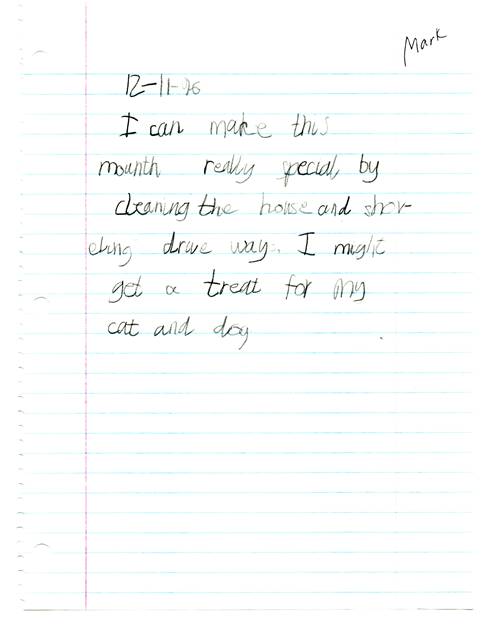 Mark
12-11-96
I can make this
mounth really special, by
cleaning the house and shov-
eling drive way. I might
get a treat for my
cat and dog